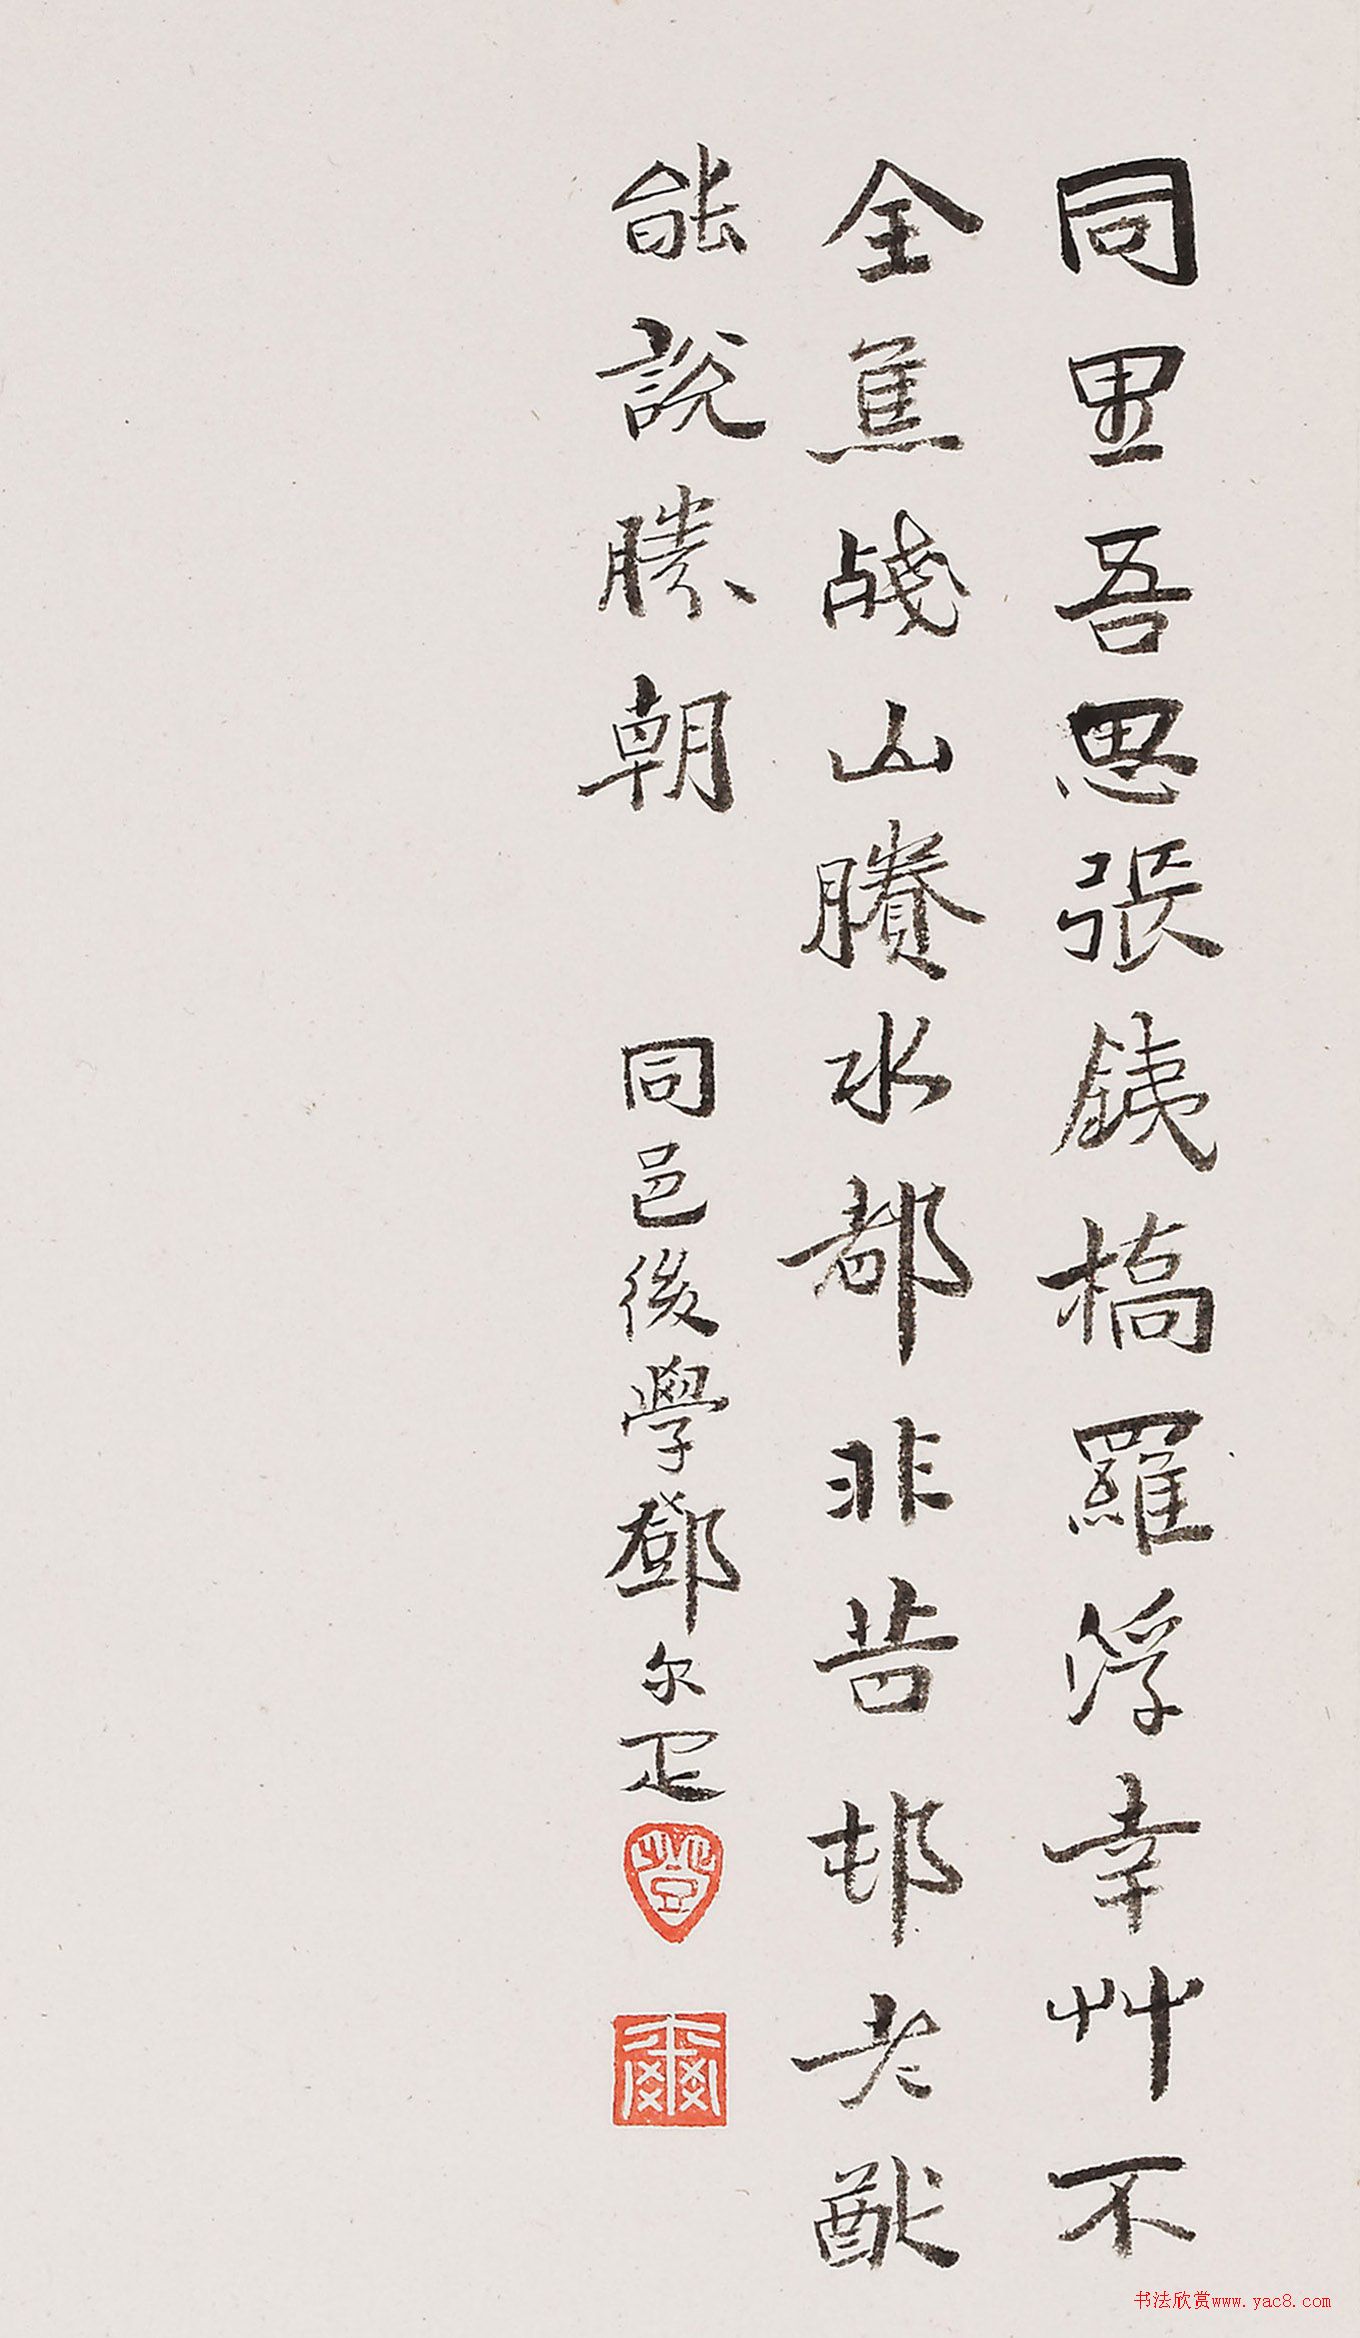 同里吾思張銕橋羅浮幸艸不
全焦殘山賸水都非昔邨老猷
能說勝朝 同邑後學鄧尔疋
登
爾
书法欣赏www.yac8.com